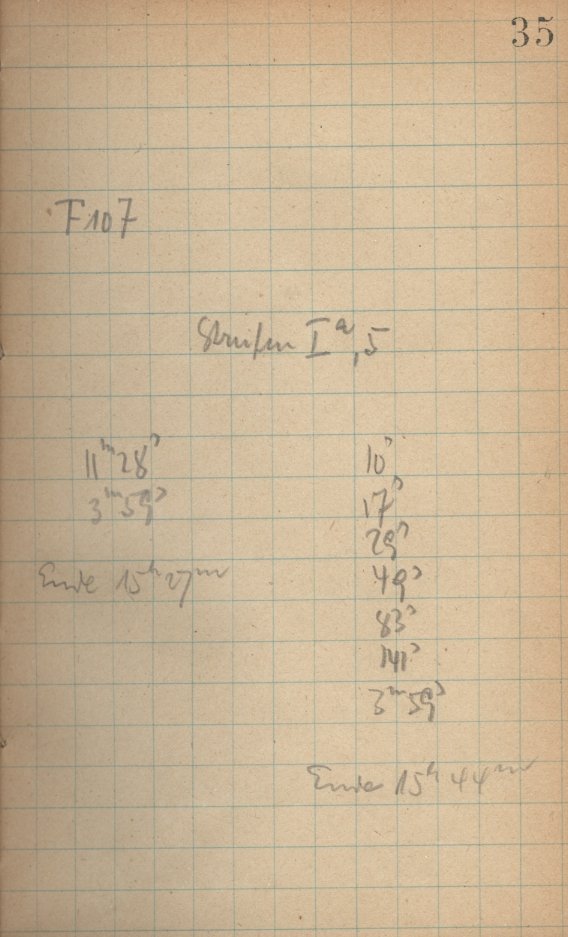 35
F107
Streifen Iᵃ,5
11ᵐ28ˢ
3ᵐ59ˢ
Ende 15ʰ27ᵐ
10ˢ
17ˢ
29ˢ
49ˢ
83ˢ
141ˢ
3ᵐ59ˢ
Ende 15ʰ44ᵐ